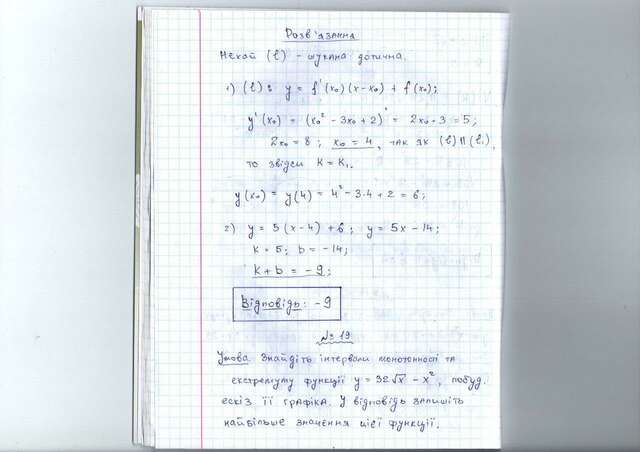 Розв'язання
Нехай (l) – шукана дотична.
1) (l): y = f'(x₀)(x-x₀) + f(x₀);
y'(x₀) = (x₀² - 3x₀ + 2)' = 2x₀ - 3 = 5;
2x₀ = 8; x₀ = 4, так як (l) || (l₁),
то звідси K = K₁.
y(x₀) = y(4) = 4² - 3·4 + 2 = 6;
2) y = 5(x-4) + 6; y = 5x - 14;
k = 5; b = -14;
k + b = -9;
Відповідь: -9
№ 19
Умова. Знайдіть інтервали монотонності та
екстремуму функції y = 32√x - x², побуд.
ескіз її графіка. У відповідь запишіть
найбільше значення цієї функції.